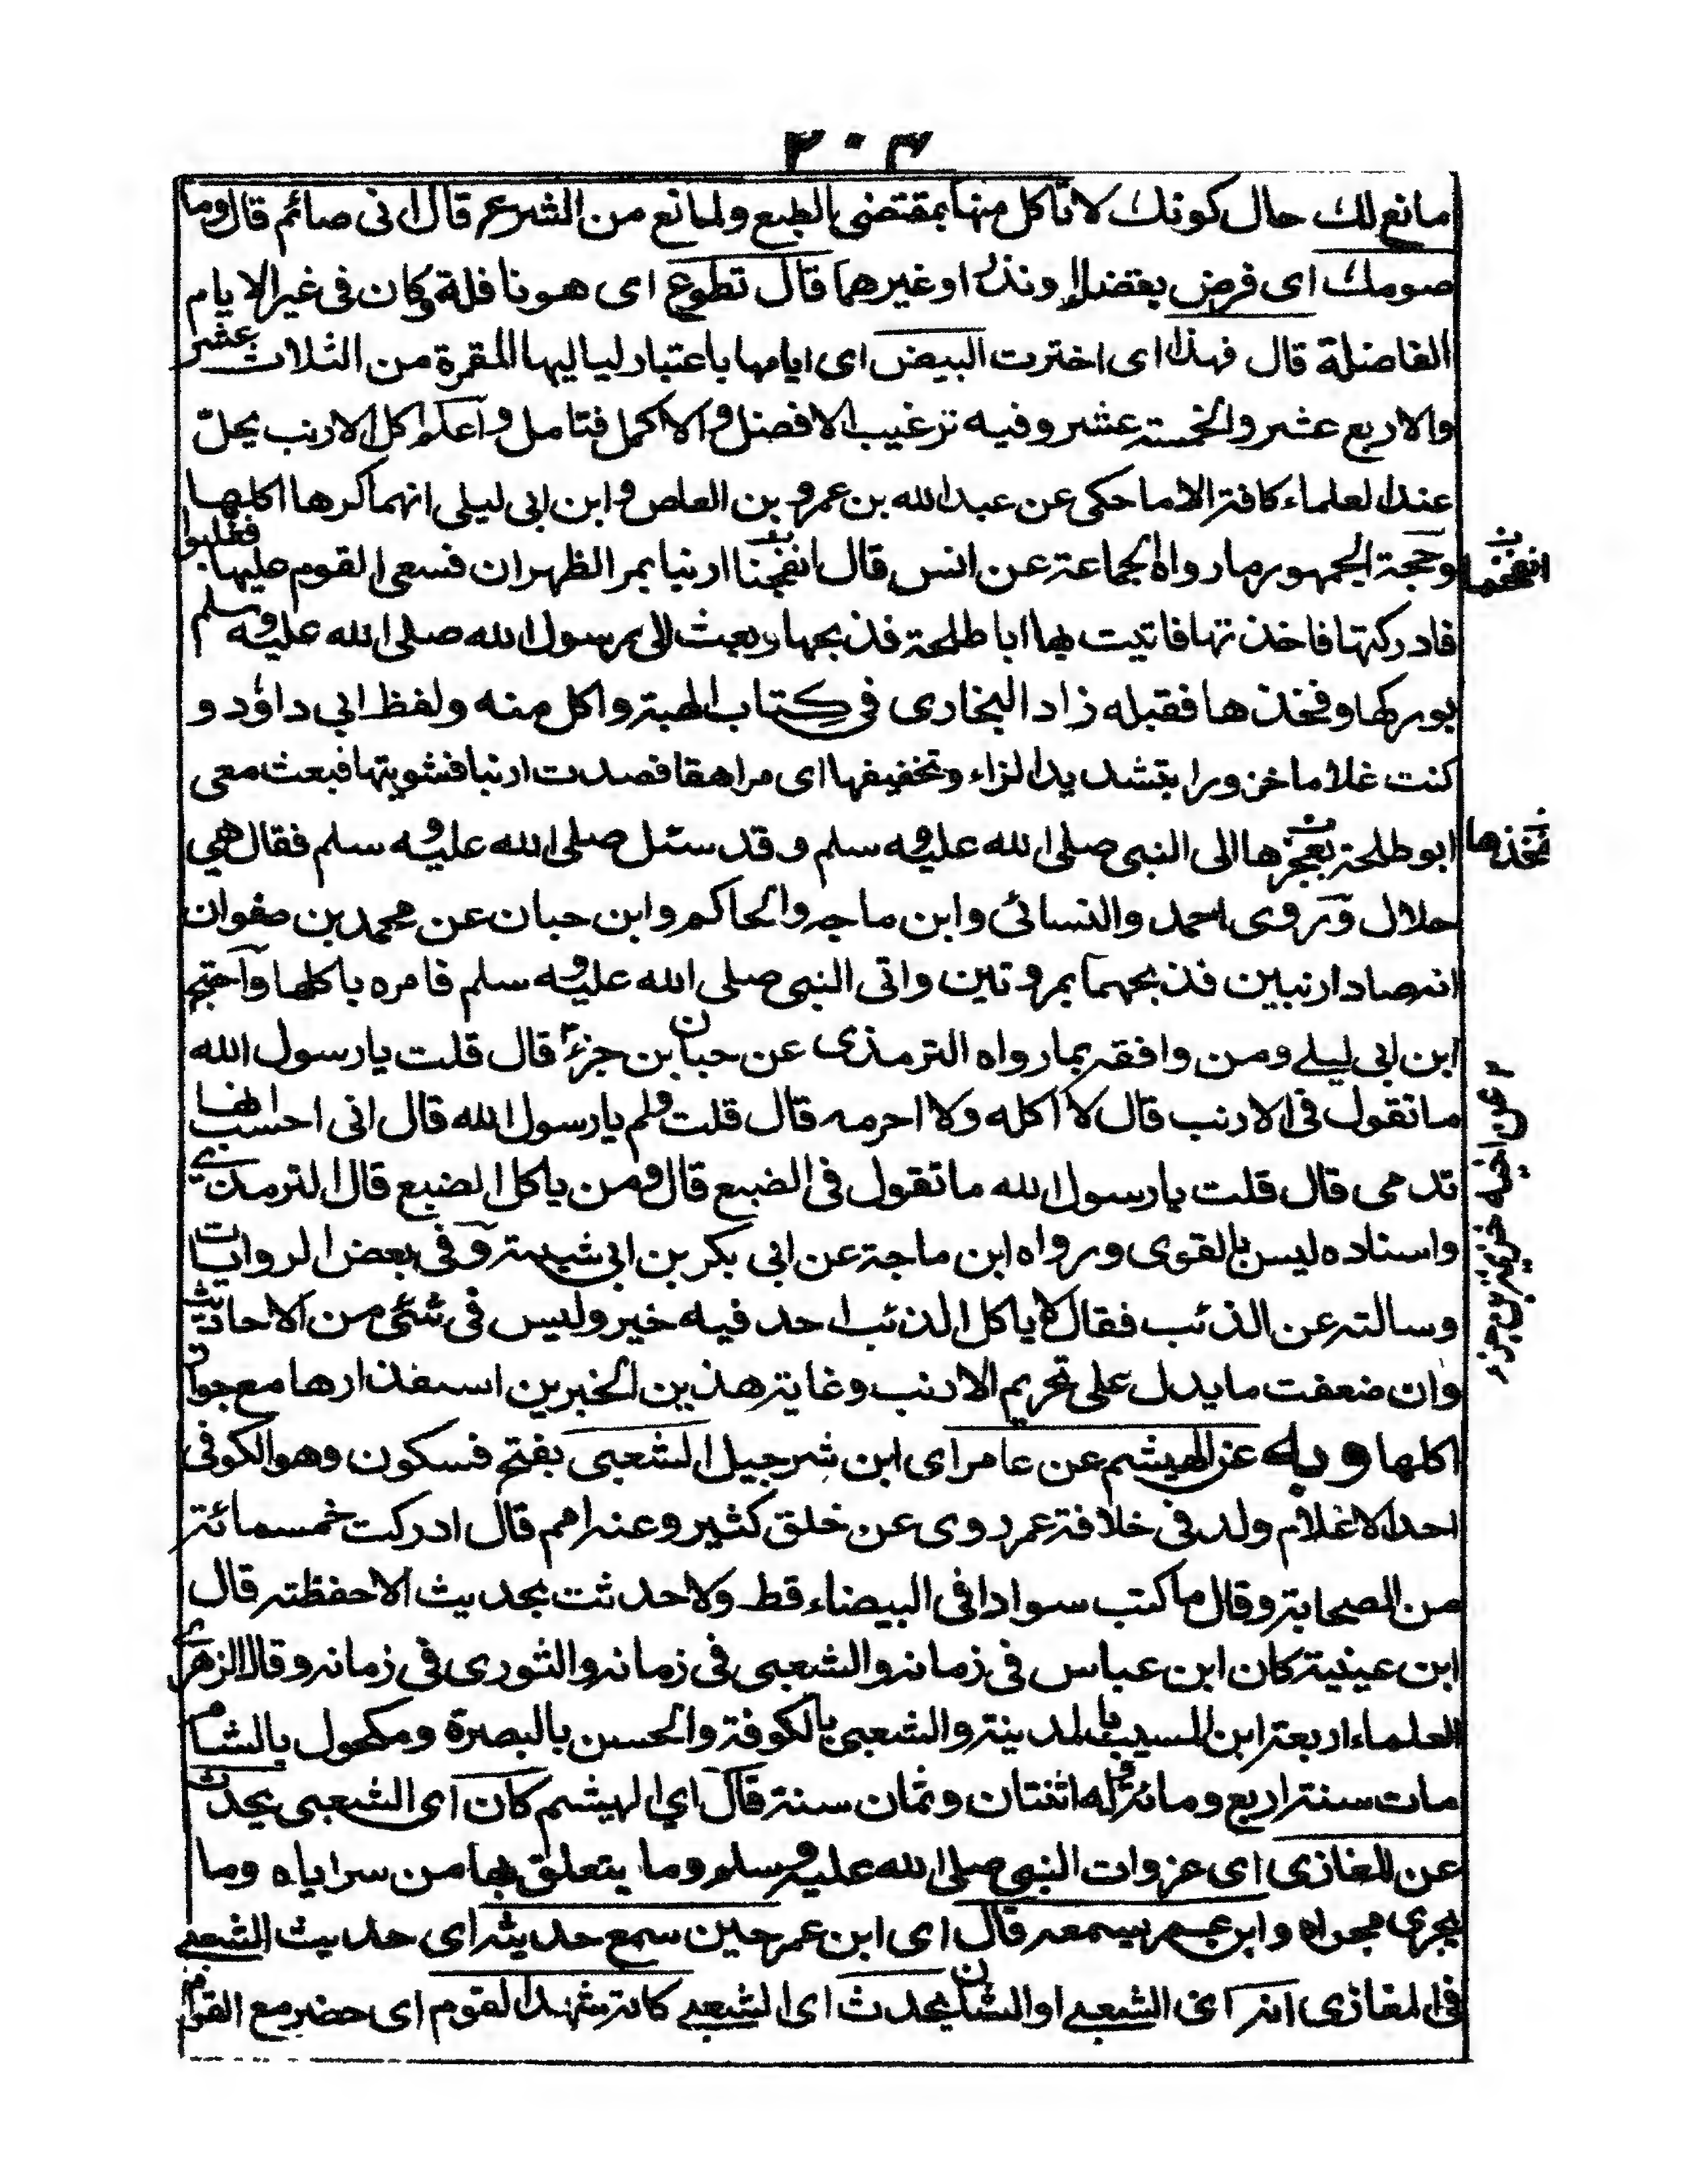 ٣٠٤
مانع لك حال كونك لا تأكل منها بمقتضى الطبع ولمانع من الشرع قال انى صائم قال وما
صومك اى فرض بقضاء او نذر او غيرهما قال تطوع اى هو نافلة وكان فى غير الايام
الفاضلة قال فهذا اى اخترت البيض اى ايامها باعتبار لياليها المقمرة من الثلاث عشر
والاربع عشر والخمسة عشر وفيه ترغيب الافضل والاكمل فتامل واعلم اكل الارنب يحل
عند العلماء كافة الا ما حكى عن عبد الله بن عمرو بن العاص وابن ابى ليلى انهما كرها اكلها
وحجة الجمهور ما رواه الجماعة عن انس قال انفجنا ارنبا بمر الظهران فسعى القوم عليها فغلبوا
انفجنا
فادركتها فاخذتها فاتيت بها ابا طلحة فذبحها وبعث الى رسول الله صلى الله عليه وسلم
بوركها وفخذها فقبله زاد البخارى فى كتاب الهبة واكل منه ولفظ ابى داؤد و
كنت غلاما خزورا بتشديد الزاء وتخفيفها اى مراهقا فصدت ارنبا فشويتها فبعث معى
ابو طلحة بعجزها الى النبى صلى الله عليه وسلم وقد سئل صلى الله عليه وسلم فقال هى
فخذها
حلال وروى احمد والنسائى وابن ماجه والحاكم وابن حبان عن محمد بن صفوان
انه صاد ارنبين فذبحهما بمروتين واتى النبى صلى الله عليه وسلم فامره باكلها واحتج
ابن ابى ليلى ومن وافقه بما رواه الترمذى عن حبان بن جزء قال قلت يا رسول الله
ما تقول فى الارنب قال لا اكله ولا احرمه قال قلت ولم يا رسول الله قال انى احسب انها
تدمى قال قلت يا رسول الله ما تقول فى الضبع قال ومن ياكل الضبع قال الترمذى
عن اخيه خزيمة بن جزء
واسناده ليس بالقوى ورواه ابن ماجة عن ابى بكر بن ابى شيبة وفى بعض الروايات
وسالته عن الذئب فقال لا ياكل الذئب احد فيه خير وليس فى شئى من الاحاديث
وان ضعفت ما يدل على تحريم الارنب وغاية هذين الخبرين استقذارها مع جواز
اكلها وبه عن الهيثم عن عامر اى ابن شرجيل الشعبى بفتح فسكون وهو الكوفى
احد الاعلام ولد فى خلافة عمر روى عن خلق كثير وعنه امم قال ادركت خمسمائة
من الصحابة وقال ما كتب سوادا فى البيضاء قط ولا حدثت بحديث الا حفظته قال
ابن عيينة كان ابن عباس فى زمانه والشعبى فى زمانه والثورى فى زمانه وقال الزهرى
العلماء اربعة ابن المسيب بالمدينة والشعبى بالكوفة والحسن بالبصرة ومكحول بالشام
مات سنة اربع ومائة وله اثنتان وثمان سنة قال اي الهيثم كان اى الشعبى يحدث
عن المغازى اى غزوات النبى صلى الله عليه وسلم وما يتعلق بها من سراياه وما
يجرى مجراه وابن عمر يسمعه قال اى ابن عمر حين سمع حديثه اى حديث الشعبى
فى المغازى انه اى الشعبى او الشان يحدث اى الشعبى كانه شهد القوم اى حضر مع القوم